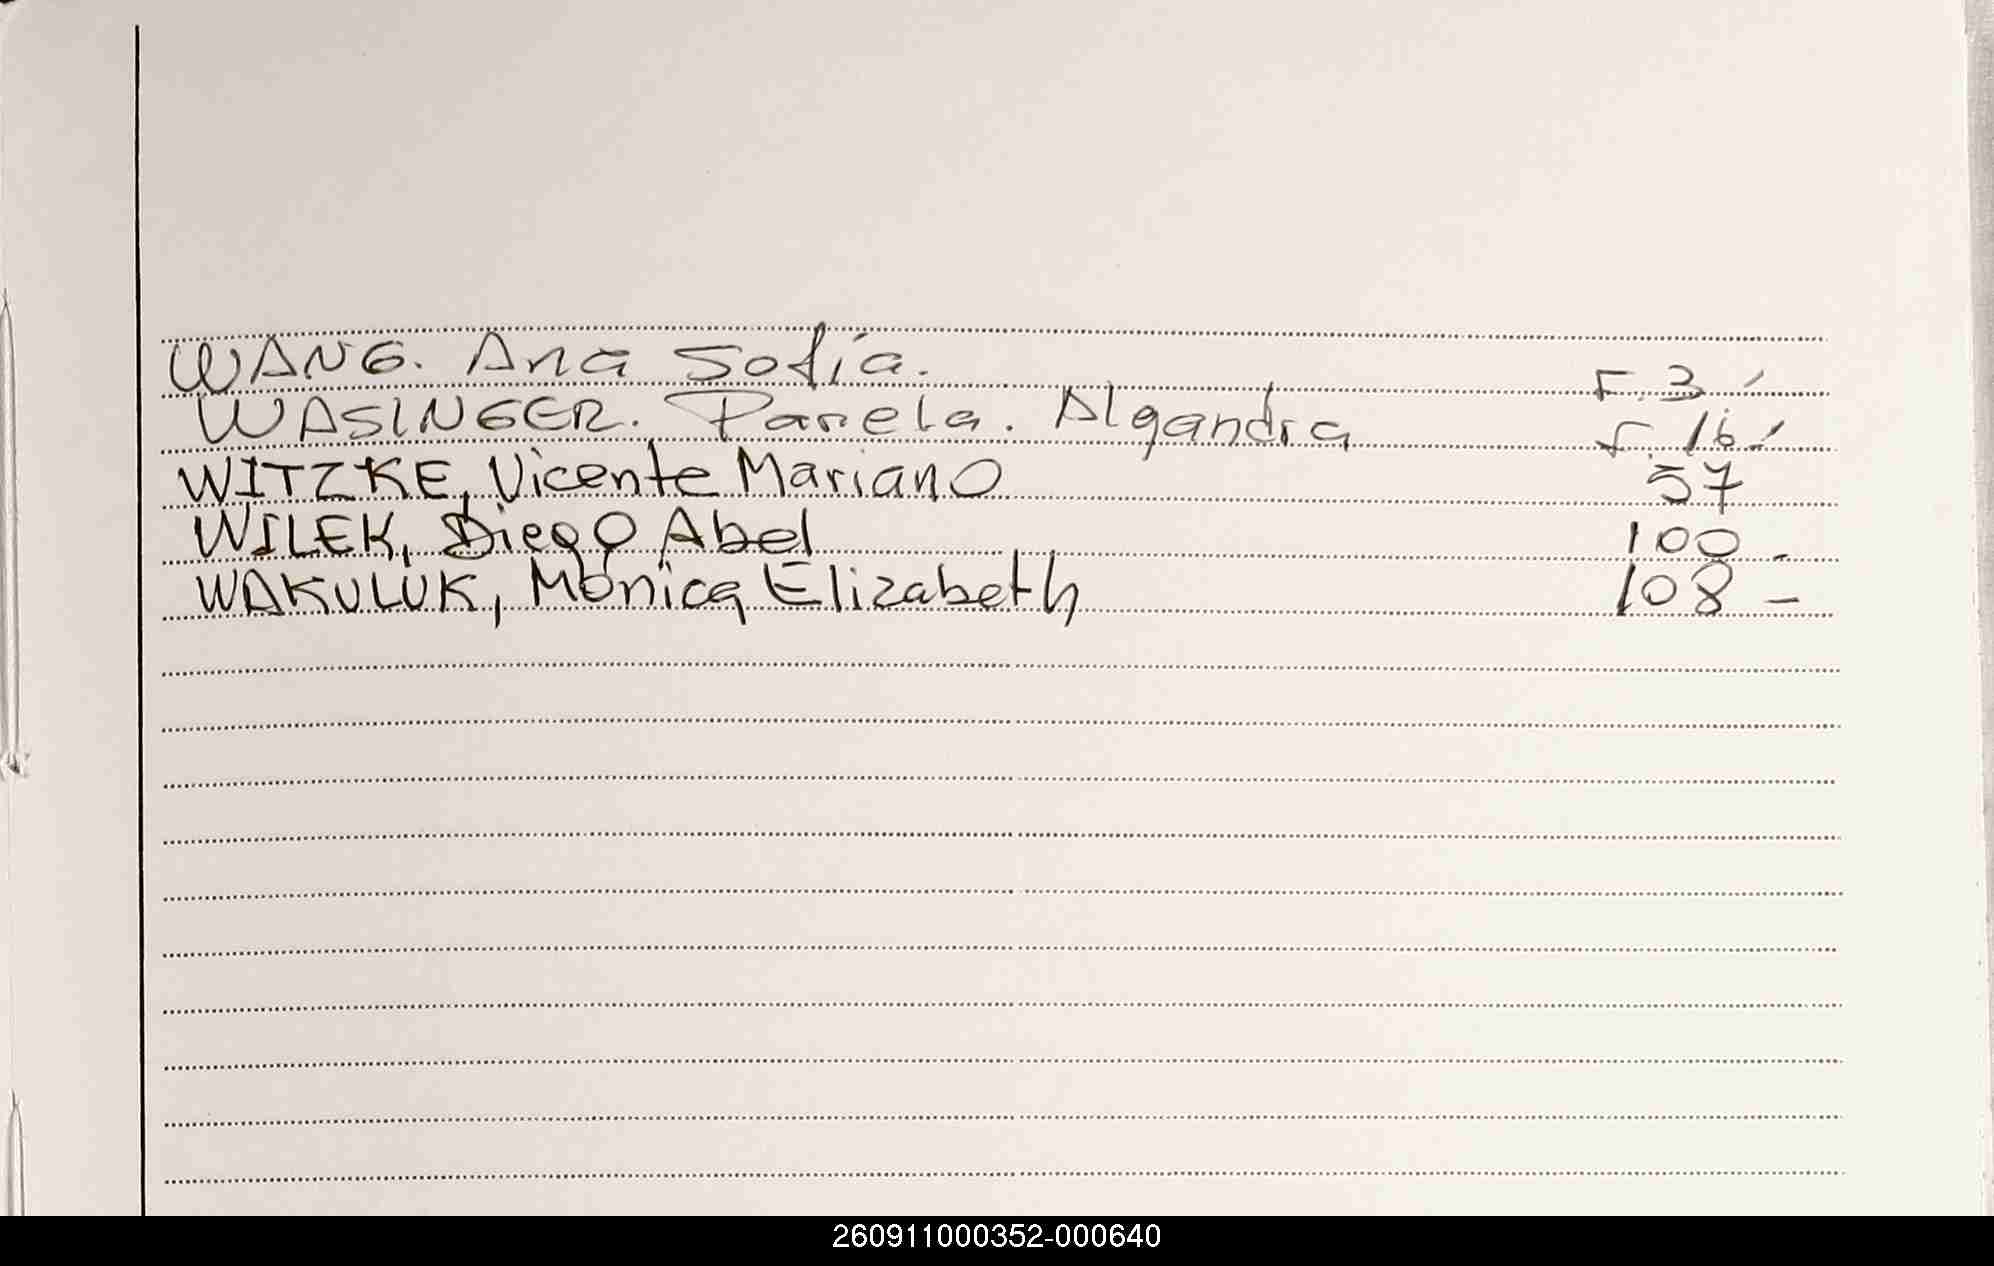 WANG. Ana Sofía. F. 3 /
WASINGER. Pamela. Alejandra F. 16 /
WITZKE, Vicente Mariano 57
WILEK, Diego Abel 100 -
WAKULUK, Monica Elizabeth 108 -
260911000352-000640